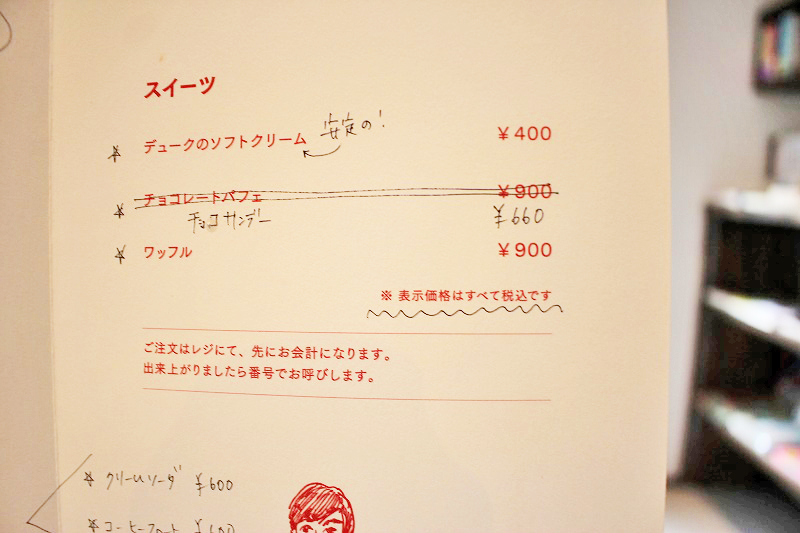 スイーツ
☆ デュークのソフトクリーム 安定の! ¥400
チョコレートパフェ ¥900
☆ チョコサンデー ¥660
☆ ワッフル ¥900
※ 表示価格はすべて税込です
ご注文はレジにて、先にお会計になります。
出来上がりましたら番号でお呼びします。
☆ クリームソーダ ¥600
☆ コーヒーフロート